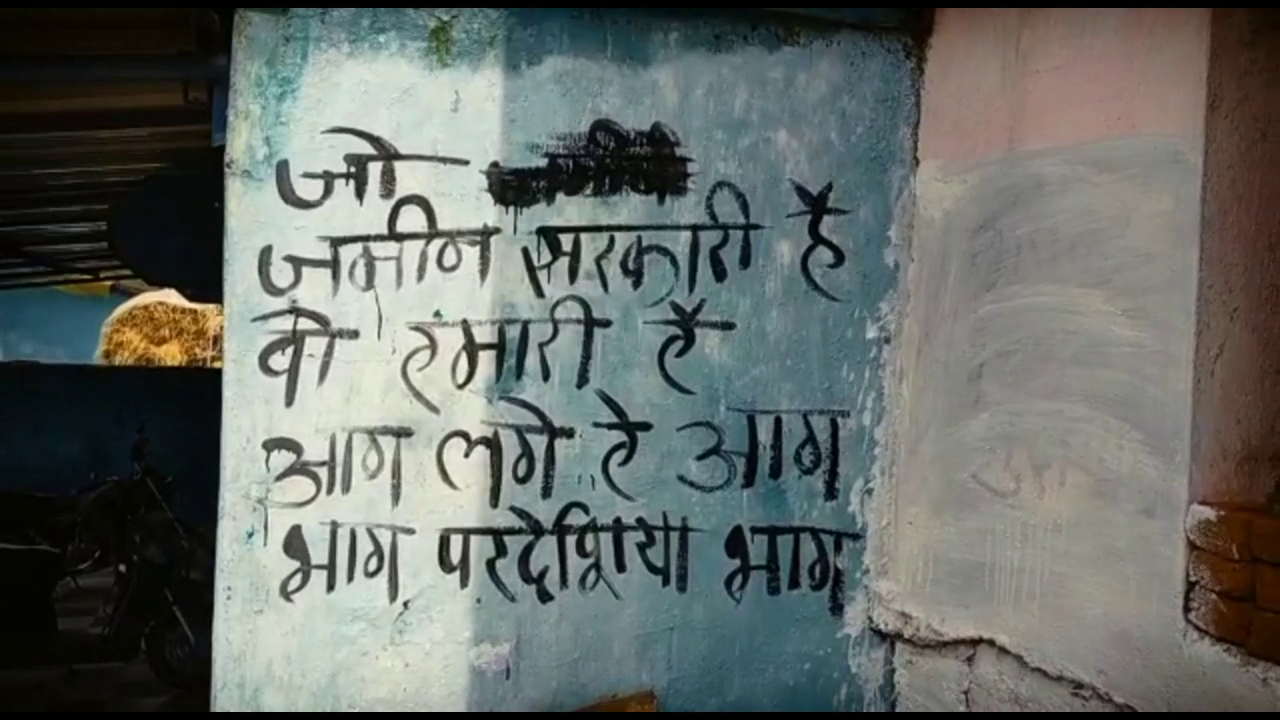 जो
जमीन सरकारी है
वो हमारी है
आग लगे रे आग
भाग परदेशिया भाग